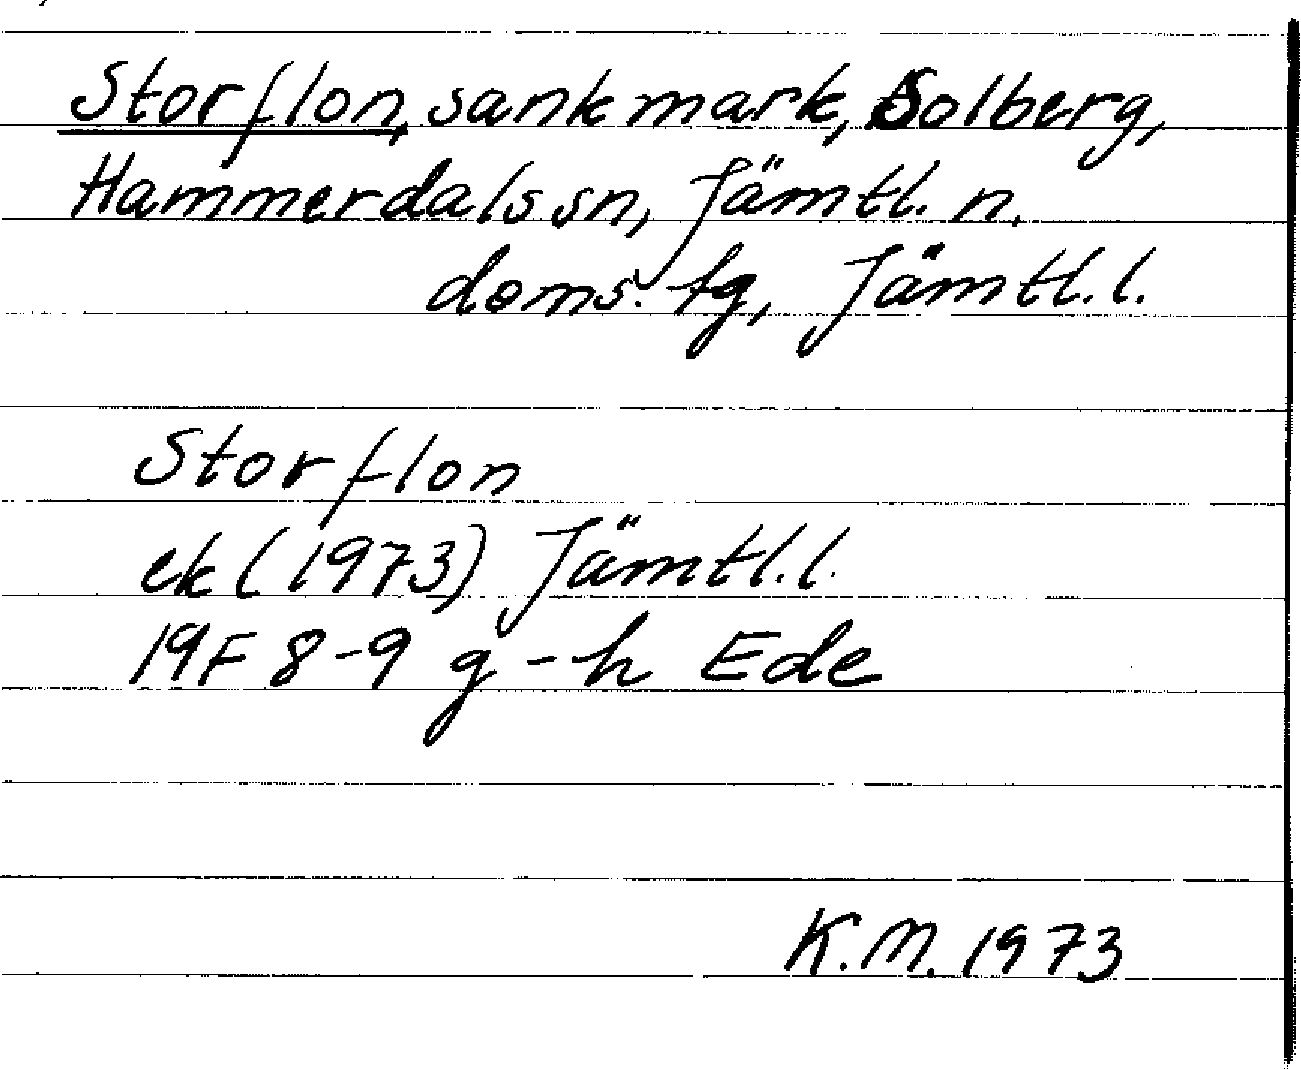 Storflon, sankmark, Solberg,
Hammerdals sn, Jämtl. n.
doms. tg, Jämtl. l.
Storflon
ek (1973) Jämtl. l.
19F 8-9 g-h Ede
K.M. 1973